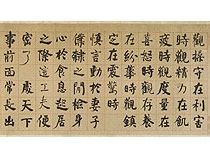 觀操守在利害
時觀精力在飢
疲時觀度量在
喜怒時觀存養
在紛華時觀鎮
定在震驚時
慎言動於妻子
僕隸之間檢身
心於食息起居
之際這工夫便
密了 天下
事前面常長出